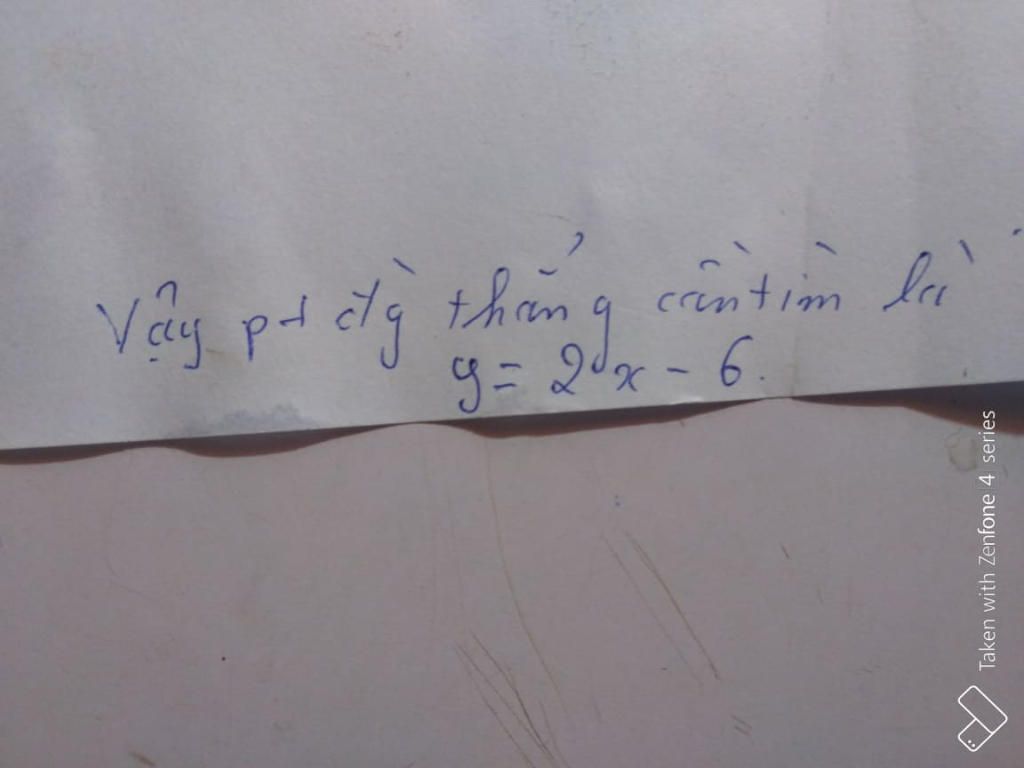 Vậy pt đg̀ thẳng cần tìm là
y = 2x - 6.
Taken with Zenfone 4 series